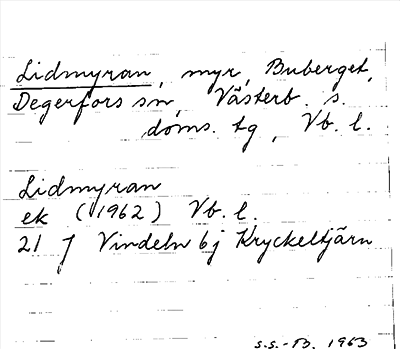 Lidmyran, myr, Buberget,
Degerfors sn, Västerb. s.
doms. tg, Vb. l.
Lidmyran
ek (1962) Vb. l.
21 J Vindeln 6j Kryckeltjärn
s.s.-B. 1963